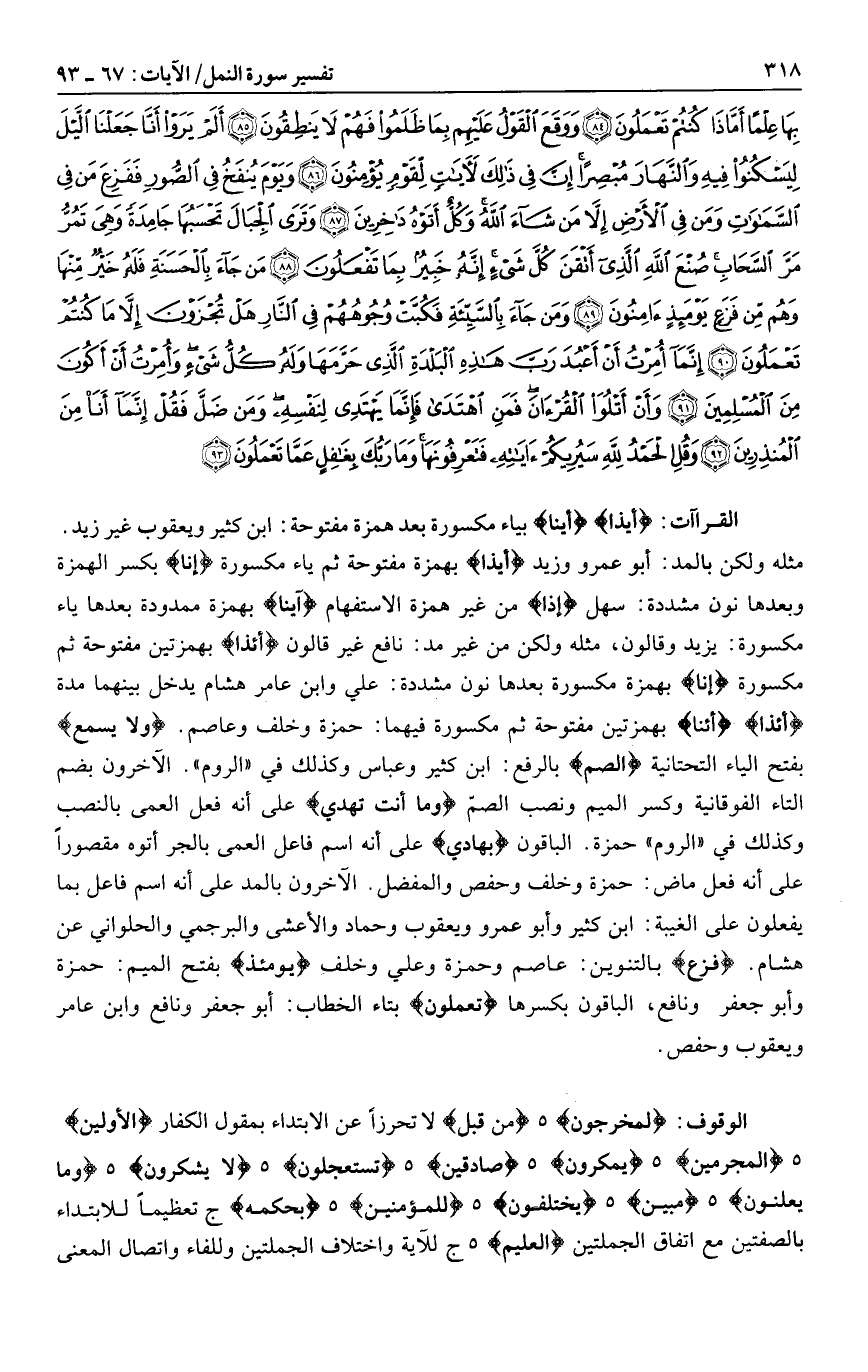 ٣١٨ تفسير سورة النمل/ الآيات: ٦٧ ـ ٩٣
بِهَا عِلْمًا أَمَّاذَا كُنتُمْ تَعْمَلُونَ ﴿٨٤﴾ وَوَقَعَ ٱلْقَوْلُ عَلَيْهِم بِمَا ظَلَمُوا۟ فَهُمْ لَا يَنطِقُونَ ﴿٨٥﴾ أَلَمْ يَرَوْا۟ أَنَّا جَعَلْنَا ٱلَّيْلَ
لِيَسْكُنُوا۟ فِيهِ وَٱلنَّهَارَ مُبْصِرًا ۚ إِنَّ فِى ذَٰلِكَ لَـَٔايَـٰتٍ لِّقَوْمٍ يُؤْمِنُونَ ﴿٨٦﴾ وَيَوْمَ يُنفَخُ فِى ٱلصُّورِ فَفَزِعَ مَن فِى
ٱلسَّمَـٰوَٰتِ وَمَن فِى ٱلْأَرْضِ إِلَّا مَن شَآءَ ٱللَّهُ ۚ وَكُلٌّ أَتَوْهُ دَٰخِرِينَ ﴿٨٧﴾ وَتَرَى ٱلْجِبَالَ تَحْسَبُهَا جَامِدَةً وَهِىَ تَمُرُّ
مَرَّ ٱلسَّحَابِ ۚ صُنْعَ ٱللَّهِ ٱلَّذِىٓ أَتْقَنَ كُلَّ شَىْءٍ ۚ إِنَّهُۥ خَبِيرٌۢ بِمَا تَفْعَلُونَ ﴿٨٨﴾ مَن جَآءَ بِٱلْحَسَنَةِ فَلَهُۥ خَيْرٌ مِّنْهَا
وَهُم مِّن فَزَعٍ يَوْمَئِذٍ ءَامِنُونَ ﴿٨٩﴾ وَمَن جَآءَ بِٱلسَّيِّئَةِ فَكُبَّتْ وُجُوهُهُمْ فِى ٱلنَّارِ هَلْ تُجْزَوْنَ إِلَّا مَا كُنتُمْ
تَعْمَلُونَ ﴿٩٠﴾ إِنَّمَآ أُمِرْتُ أَنْ أَعْبُدَ رَبَّ هَـٰذِهِ ٱلْبَلْدَةِ ٱلَّذِى حَرَّمَهَا وَلَهُۥ كُلُّ شَىْءٍ ۖ وَأُمِرْتُ أَنْ أَكُونَ
مِنَ ٱلْمُسْلِمِينَ ﴿٩١﴾ وَأَنْ أَتْلُوَا۟ ٱلْقُرْءَانَ ۖ فَمَنِ ٱهْتَدَىٰ فَإِنَّمَا يَهْتَدِى لِنَفْسِهِۦ ۖ وَمَن ضَلَّ فَقُلْ إِنَّمَآ أَنَا۠ مِنَ
ٱلْمُنذِرِينَ ﴿٩٢﴾ وَقُلِ ٱلْحَمْدُ لِلَّهِ سَيُرِيكُمْ ءَايَـٰتِهِۦ فَتَعْرِفُونَهَا ۚ وَمَا رَبُّكَ بِغَـٰفِلٍ عَمَّا تَعْمَلُونَ ﴿٩٣﴾
القراآت: ﴿أيذا﴾ ﴿أينا﴾ بياء مكسورة بعد همزة مفتوحة: ابن كثير ويعقوب غير زيد.
مثله ولكن بالمد: أبو عمرو وزيد ﴿أيذا﴾ بهمزة مفتوحة ثم ياء مكسورة ﴿إنا﴾ بكسر الهمزة
وبعدها نون مشددة: سهل ﴿إذا﴾ من غير همزة الاستفهام ﴿آينا﴾ بهمزة ممدودة بعدها ياء
مكسورة: يزيد وقالون، مثله ولكن من غير مد: نافع غير قالون ﴿أئذا﴾ بهمزتين مفتوحة ثم
مكسورة ﴿إنا﴾ بهمزة مكسورة بعدها نون مشددة: علي وابن عامر هشام يدخل بينهما مدة
﴿أئذا﴾ ﴿أئنا﴾ بهمزتين مفتوحة ثم مكسورة فيهما: حمزة وخلف وعاصم. ﴿ولا يسمع﴾
بفتح الياء التحتانية ﴿الصم﴾ بالرفع: ابن كثير وعباس وكذلك في «الروم». الآخرون بضم
التاء الفوقانية وكسر الميم ونصب الصمّ ﴿وما أنت تهدي﴾ على أنه فعل العمى بالنصب
وكذلك في «الروم» حمزة. الباقون ﴿بهادي﴾ على أنه اسم فاعل العمى بالجر أتوه مقصوراً
على أنه فعل ماض: حمزة وخلف وحفص والمفضل. الآخرون بالمد على أنه اسم فاعل بما
يفعلون على الغيبة: ابن كثير وأبو عمرو ويعقوب وحماد والأعشى والبرجمي والحلواني عن
هشام. ﴿فزع﴾ بالتنوين: عاصم وحمزة وعلي وخلف ﴿يومئذ﴾ بفتح الميم: حمزة
وأبو جعفر ونافع، الباقون بكسرها ﴿تعملون﴾ بتاء الخطاب: أبو جعفر ونافع وابن عامر
ويعقوب وحفص.
الوقوف: ﴿لمخرجون﴾ ٥ ﴿من قبل﴾ لا تحرزاً عن الابتداء بمقول الكفار ﴿الأولين﴾
٥ ﴿المجرمين﴾ ٥ ﴿يمكرون﴾ ٥ ﴿صادقين﴾ ٥ ﴿تستعجلون﴾ ٥ ﴿لا يشكرون﴾ ٥ ﴿وما
يعلنون﴾ ٥ ﴿مبين﴾ ٥ ﴿يختلفون﴾ ٥ ﴿للمؤمنين﴾ ٥ ﴿بحكمه﴾ ج تعظيماً للابتداء
بالصفتين مع اتفاق الجملتين ﴿العليم﴾ ٥ ج للآية واختلاف الجملتين وللفاء واتصال المعنى